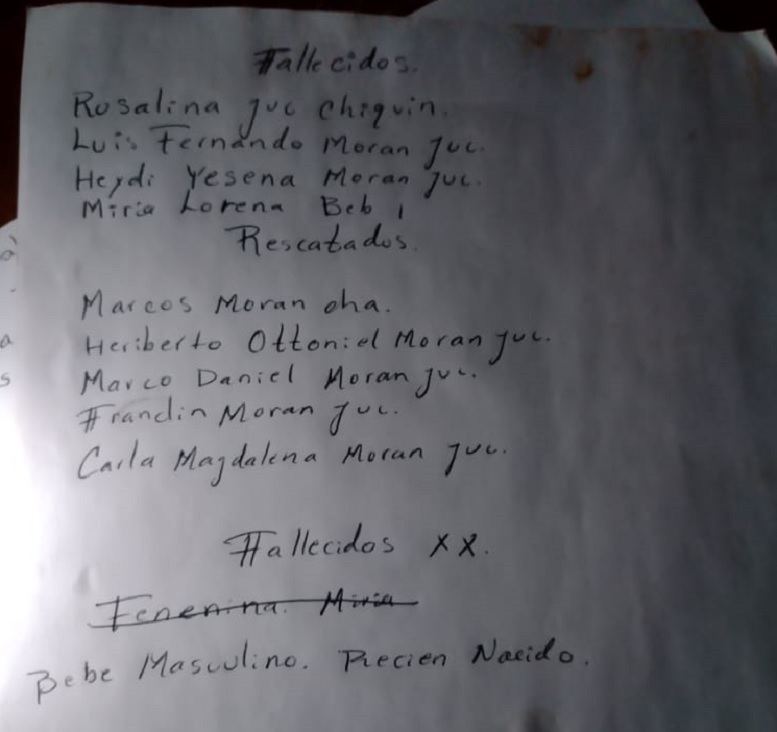 Fallecidos.
Rosalina Juc Chiquin.
Luis Fernando Moran Juc.
Heydi Yesena Moran Juc.
Miria Lorena Beb
Rescatados.
Marcos Moran cha.
Heriberto Ottoniel Moran Juc.
Marco Daniel Moran Juc.
Franclin Moran Juc.
Carla Magdalena Moran Juc.
Fallecidos XX.
Fenenina. Miria
Bebe Masculino. Recien Nacido.